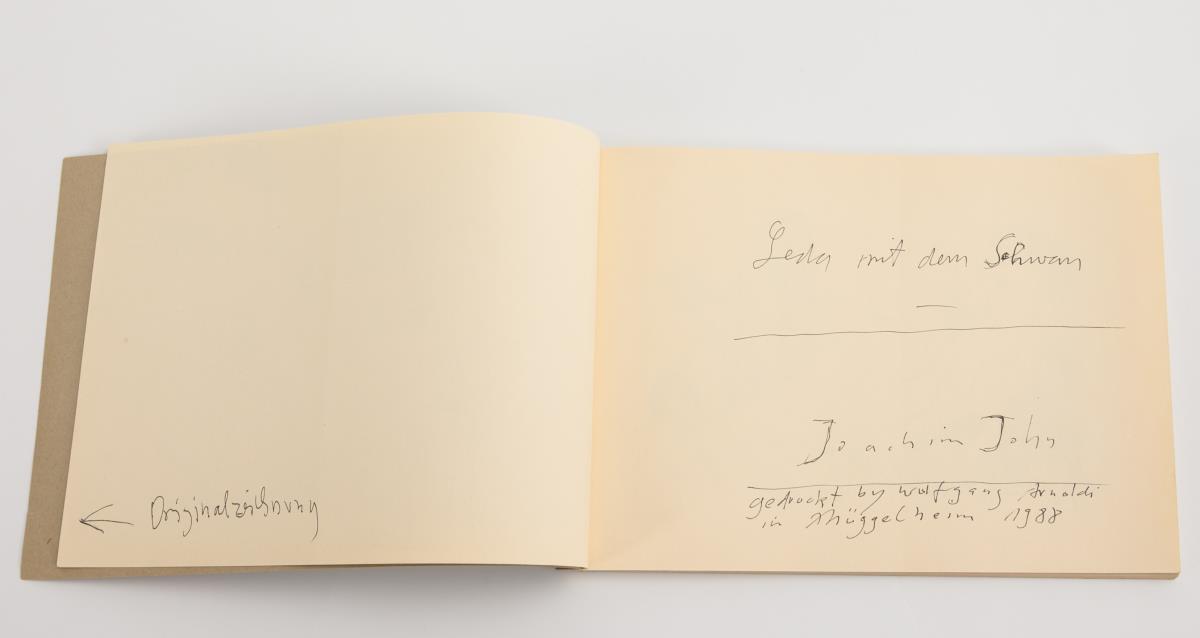 ← Originalzeichnung
Leda mit dem Schwan
—
Joachim John
gedruckt by Wolfgang Arnoldi
in Müggelheim 1988